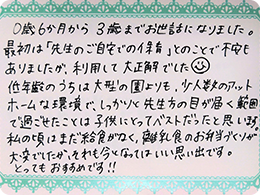 0歳6か月から3歳までお世話になりました。
最初は「先生のご自宅での保育」とのことで不安も
ありましたが、利用して大正解でした☺
低年齢のうちは大型の園よりも、少人数のアット
ホームな環境で、しっかりと先生方の目が届く範囲
で過ごせたことは子供にとってベストだったと思います。
私の頃はまだ給食がなく、離乳食のお弁当づくりが
大変でしたが、それも今となってはいい思い出です。
とってもおすすめです!!